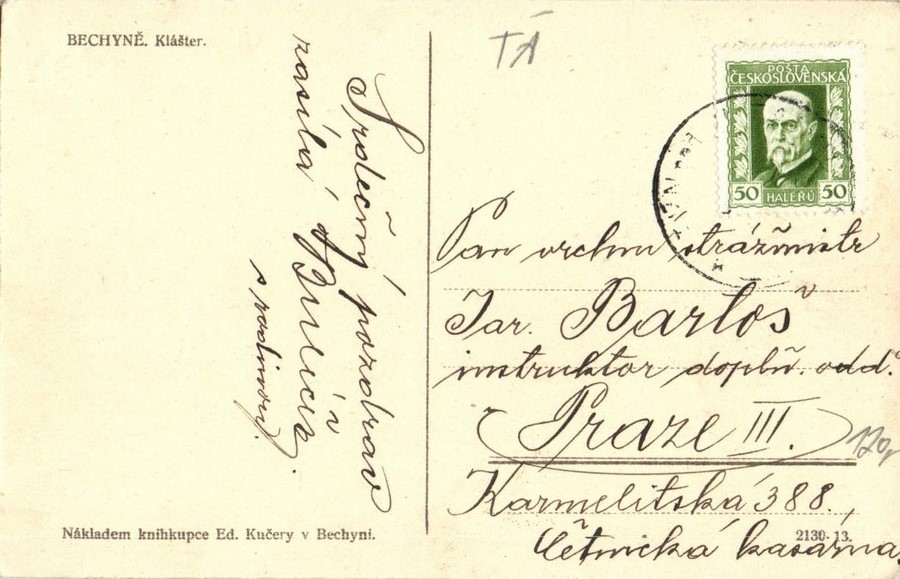 BECHYNĚ. Klášter.
TÁ
Srdečný pozdrav
zasílá
s rodinou.
POŠTA
ČESKOSLOVENSKÁ
50 HALÉŘŮ 50
Pan vrchní strážmistr
Jar. Bartoš
instruktor doplň. odd.
v
Praze III.
120,
Karmelitská 388.,
Četnická kasárna
Nákladem knihkupce Ed. Kučery v Bechyni.
2130-13.